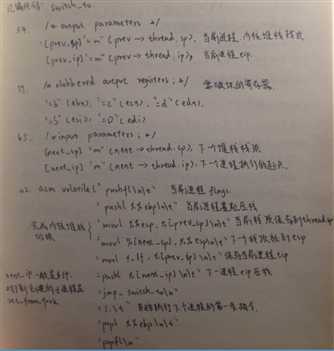 汇编代码: switch_to
59. /* output parameters */
[prev_sp] "=m" (prev->thread.sp), 当前进程, 内核堆栈栈顶
[prev_ip] "=m" (prev->thread.ip), 当前进程 eip
/* clobbered output registers: */ 寄存器
"=b" (ebx), "=c" (ecx), "=d" (edx),
"=S" (esi), "=D" (edi)
65. /* input parameters: */
[next_sp] "m" (next->thread.sp), 下一个堆栈栈顶
[next_ip] "m" (next->thread.ip), 下一个进程执行的起点
42 asm volatile("pushfl\n\t" 当前进程 flags.
"pushl %%ebp\n\t" 当前进程
完成内核堆栈的切换
"movl %%esp, %[prev_sp]\n\t" 当前栈顶保存到 thread.sp
"movl %[next_sp], %%esp\n\t" 下一个栈顶放到 esp
"movl $1f, %[prev_ip]\n\t" 保存当前进程 eip
"pushl %[next_ip]\n\t" 下一进程 eip 压栈
next_ip 一般是
ret_from_fork
"jmp __switch_to\n"
"1:\t" 下一个进程的第一条指令.
"popl %%ebp\n\t"
"popfl\n"